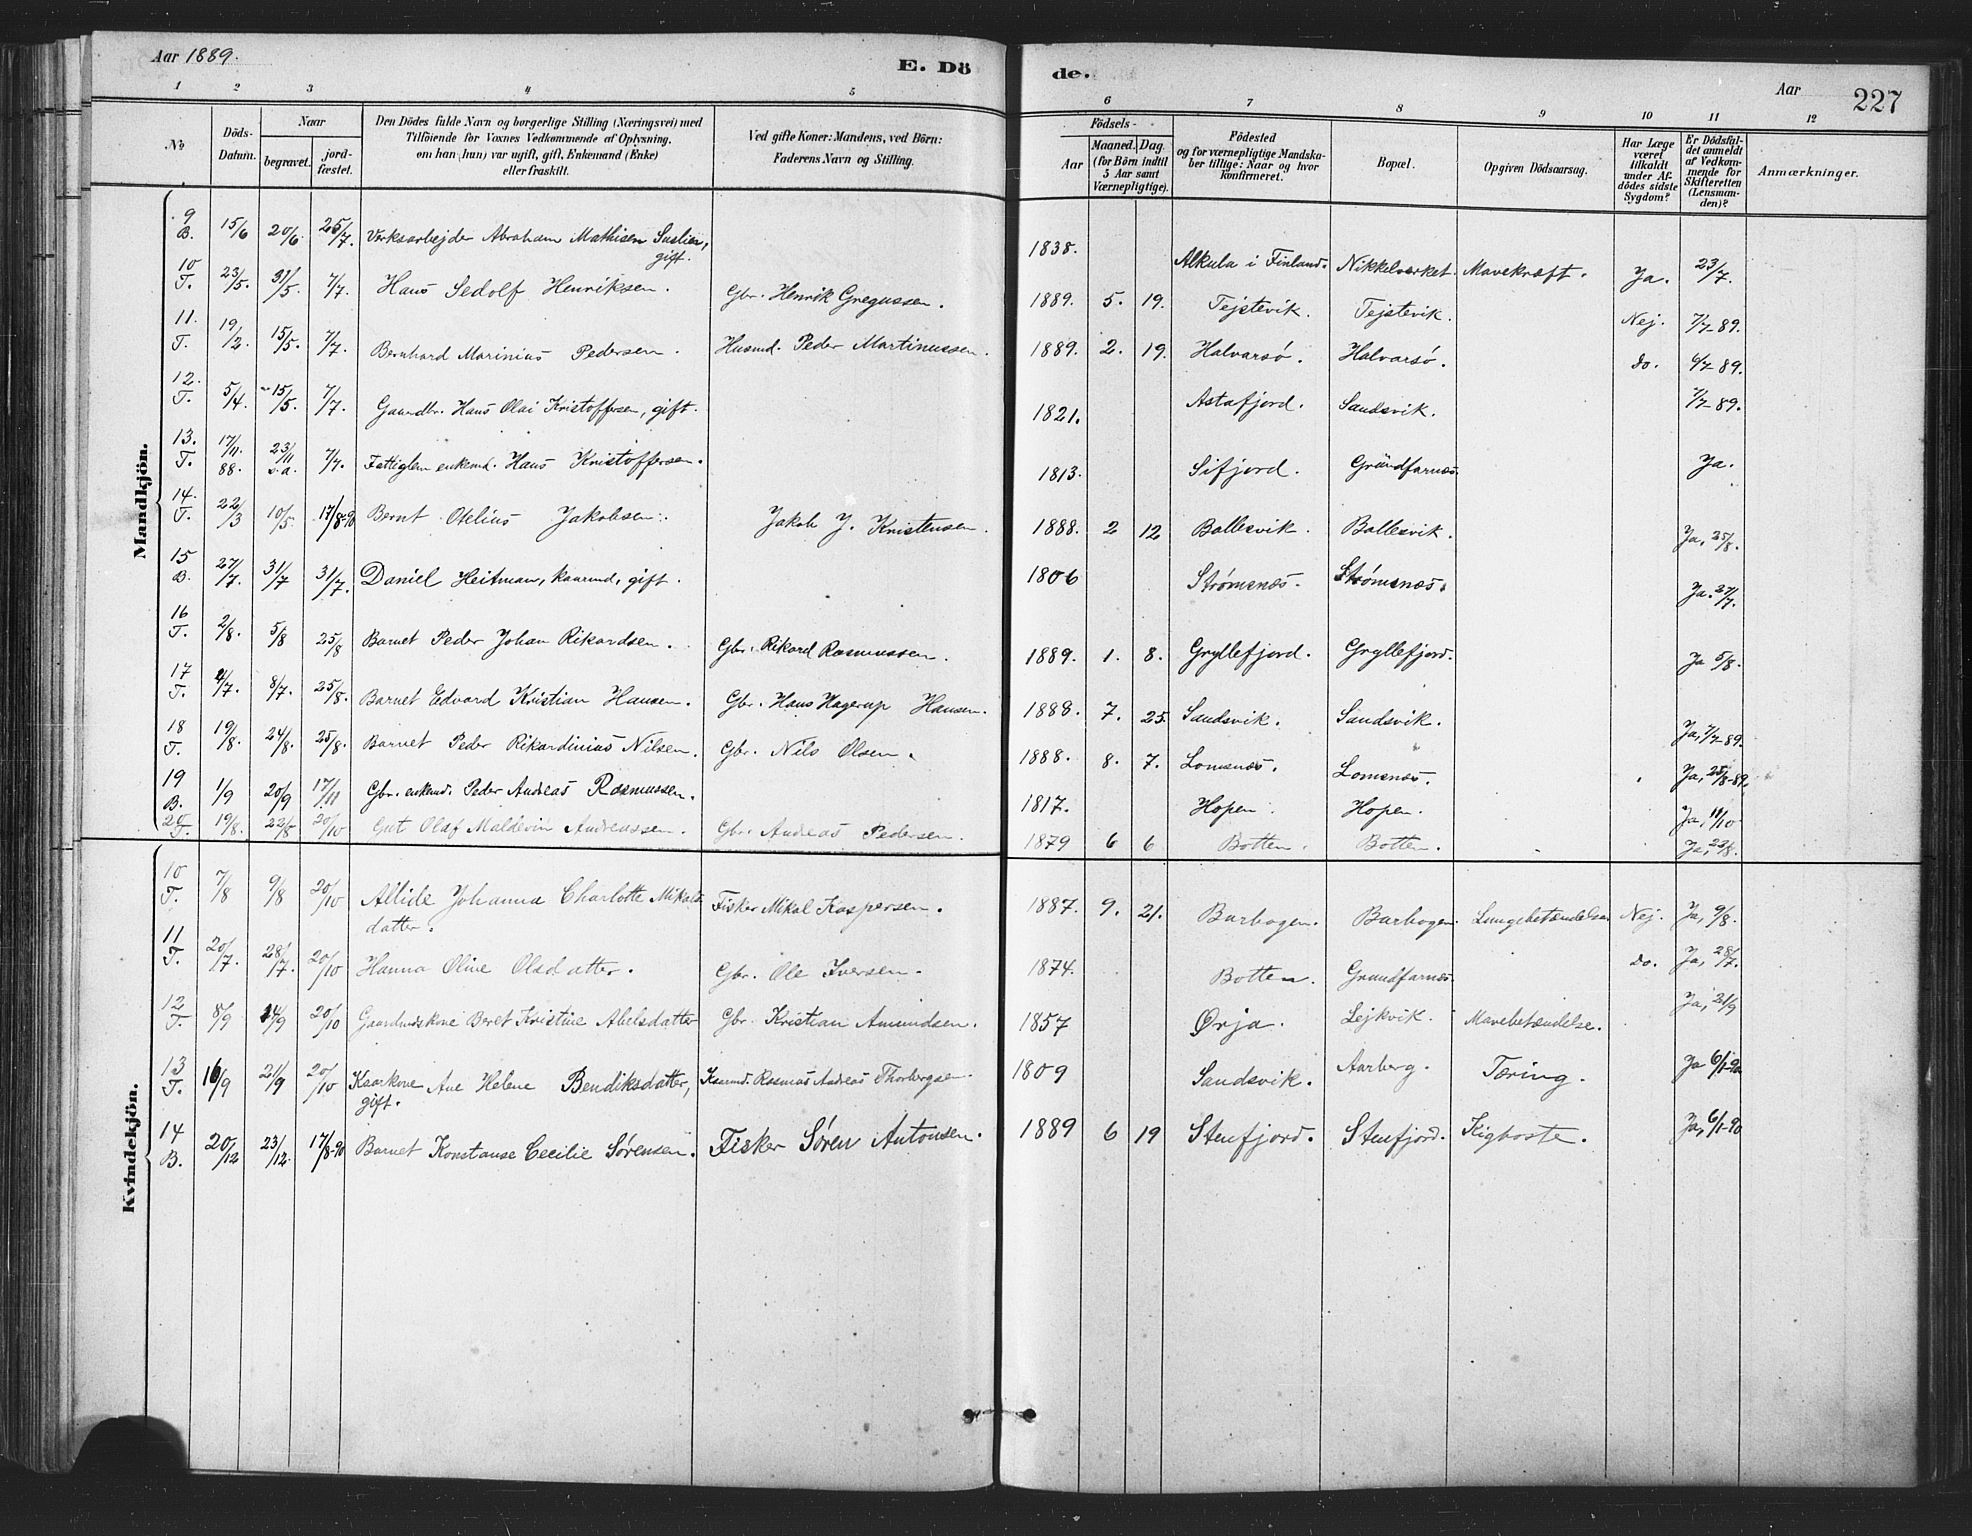 Aar 1889.
E. Dö
de.
Aar
227
1 2 3 4 5 6 7 8 9 10 11 12
No
Döds-Datum.
Naar
begravet.
jord-fæstet.
Den Dödes fulde Navn og borgerlige Stilling (Næringsvei) med
Tilföiende for Voxnes Vedkommende af Oplysning,
om han (hun) var ugift, gift, Enkemand (Enke)
eller fraskilt.
Ved gifte Koner: Mandens, ved Börn:
Faderens Navn og Stilling.
Födsels-
Aar
Maaned. Dag.
(for Börn indtil
5 Aar samt
Værnepligtige).
Födested
og for værnepligtige Mandska-
ber tillige: Naar og hvor
konfirmeret.
Bopæl.
Opgiven Dödsaarsag.
Har Læge
været
tilkaldt
under Af-
dödes sidste
Sygdom?
Er Dödsfal-
det anmeldt
af Vedkom-
mende for
Skifteretten
(Lensman-
den)?
Anmærkninger.
Mandkjön.
9 B. 15/6 20/6 25/7. Verksarbejder Abraham Mathisen gift. 1838. Alkula i Finland. Nikkelverket. Mavekræft. Ja. 23/7.
10 T. 23/5. 31/5. 7/7. Hans Sedolf Henriksen. Gbr. Henrik Gregussen. 1889. 5. 19. Tejstevik. Tejstevik. Nej. 7/7-89.
11. T. 19/2. 15/5. 7/7. Bernhard Marinius Pedersen. Husmd. Peder Martinussen. 1889. 2. 19. Halvarsö. Halvarsö. do. 6/7-89.
12. T. 5/4. 15/5. 7/7. Gaardbr. Hans Olai Kristoffersen, gift. 1821. Astafjord. Sandsvik. 7/7-89.
13. T. 17/11 88. 23/11 s.a. 7/7. Fattiglem enkemd. Hans Kristoffersen. 1813. Sifjord. Grundfarnæs. Ja.
14. T. 22/3 10/5. 17/8-90 Bernt Otelius Jakobsen. Jakob J. Kristensen. 1888. 2 12 Ballesvik. Ballesvik. Ja, 25/8.
15 B. 27/7. 31/7 31/7. Daniel Heitman, kaarmd, gift. 1806 Strømsnæs. Strømsnæs. Ja. 27/7.
16 T. 2/8. 5/8 25/8 Barnet Peder Johan Rikardsen. Gbr. Rikard Rasmussen. 1889. 1. 8. Gryllefjord. Gryllefjord. Ja 5/8.
17 T. 4/7. 8/7. 25/8. Barnet Edvard Kristian Hansen. Gbr. Hans Hagerup Hansen. 1888. 7. 25. Sandsvik. Sandsvik. Ja, 7/7-89.
18 T. 19/8. 24/8. 25/8. Barnet Peder Rikardinius Nilsen. Gbr. Nils Olsen. 1888. 8. 7. Lomsnæs. Lomsnæs. Ja, 25/8-89.
19 B. 1/9 20/9 17/11 Gbr. enkemd. Peder Andreas Rasmussen. 1817. Hopen. Hopen. Ja, 11/10
20 T. 19/8. 22/8 20/10 Gut Olaf Maldevin Andreassen. Gbr. Andreas Pedersen. 1879 6 6 Botten. Botten. Ja, 22/8.
Kvindekjön.
10 T. 7/8 9/8 20/10 Allide Johanna Charlotte Mikals
datter. Fisker Mikal Kaspersen. 1887. 9. 21. Barbogen. Barbogen. Lungebetændelse. Nej. Ja, 9/8.
11 T. 20/7. 28/7. 20/10 Hanna Oline Olsdatter. Gbr. Ole Iversen. 1874. Botten. Grundfarnæs. do. Ja, 28/7.
12 T. 8/9 14/9 20/10 Gaardmdskone Beret Kristine Abelsdatter Gbr. Kristian Amundsen. 1857 Ørja. Lejkvik. Mavebetændelse. Ja, 21/9
13 T. 16/9 21/9 20/10 Kaarkone Ane Helene Bendiksdatter,
gift. Kaarmd. Rasmus Andreas Thorbergsen. 1809 Sandsvik. Aarberg. Tæring. Ja 6/1-90
14 B. 20/12 23/12. 17/8-90 Barnet Konstanse Cecilie Sørensen. Fisker Søren Antonsen. 1889 6 19 Stenfjord. Stenfjord. Kighoste. Ja, 6/1-90